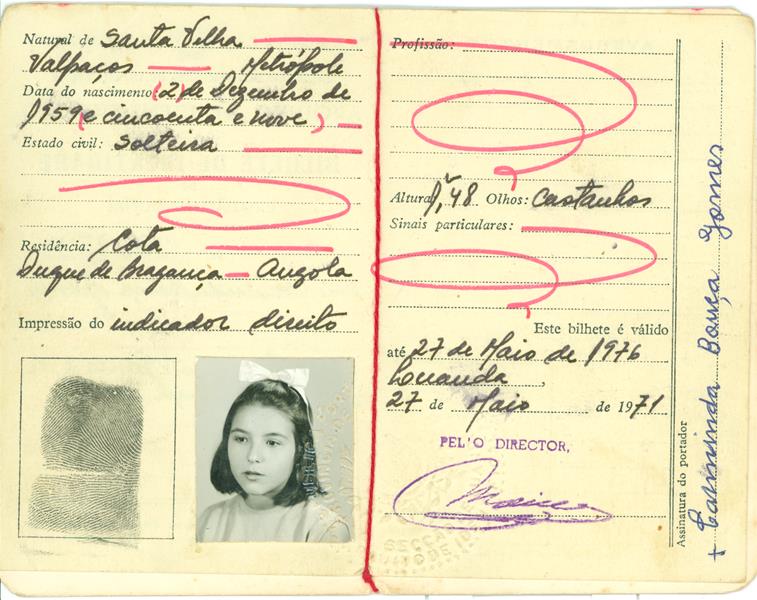 Natural de Santa Velha
Valpaços Metrópole
Data do nascimento: (2) de Dezembro de
1959 (e cincoenta e nove)
Estado civil: Solteira
Residência: Cota
Duque de Bragança — Angola
Impressão do indicador direito
Profissão:
Altura 1,48 Olhos: Castanhos
Sinais particulares:
Este bilhete é válido
até 27 de Maio de 1976
Luanda,
27 de Maio de 1971
PEL'O DIRECTOR,
Assinatura do portador
+ Carminda Bouça Gomes